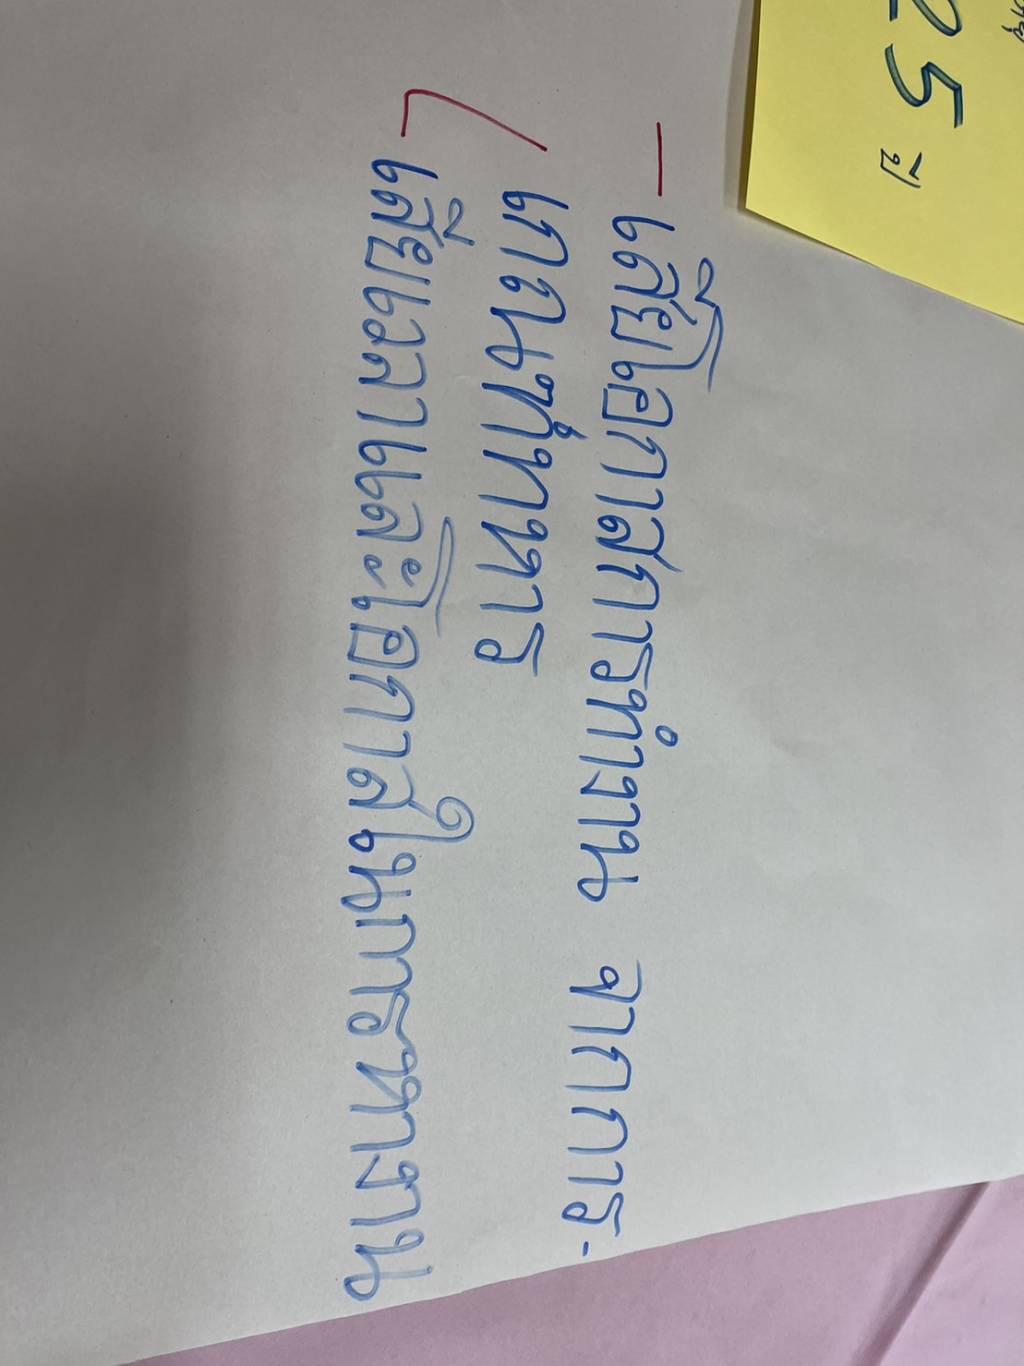 25 ปี
- เสียโอกาสการทำงาน จากการ-
เกณฑ์ทหาร
เสียเวลาและโอกาสในการหางาน